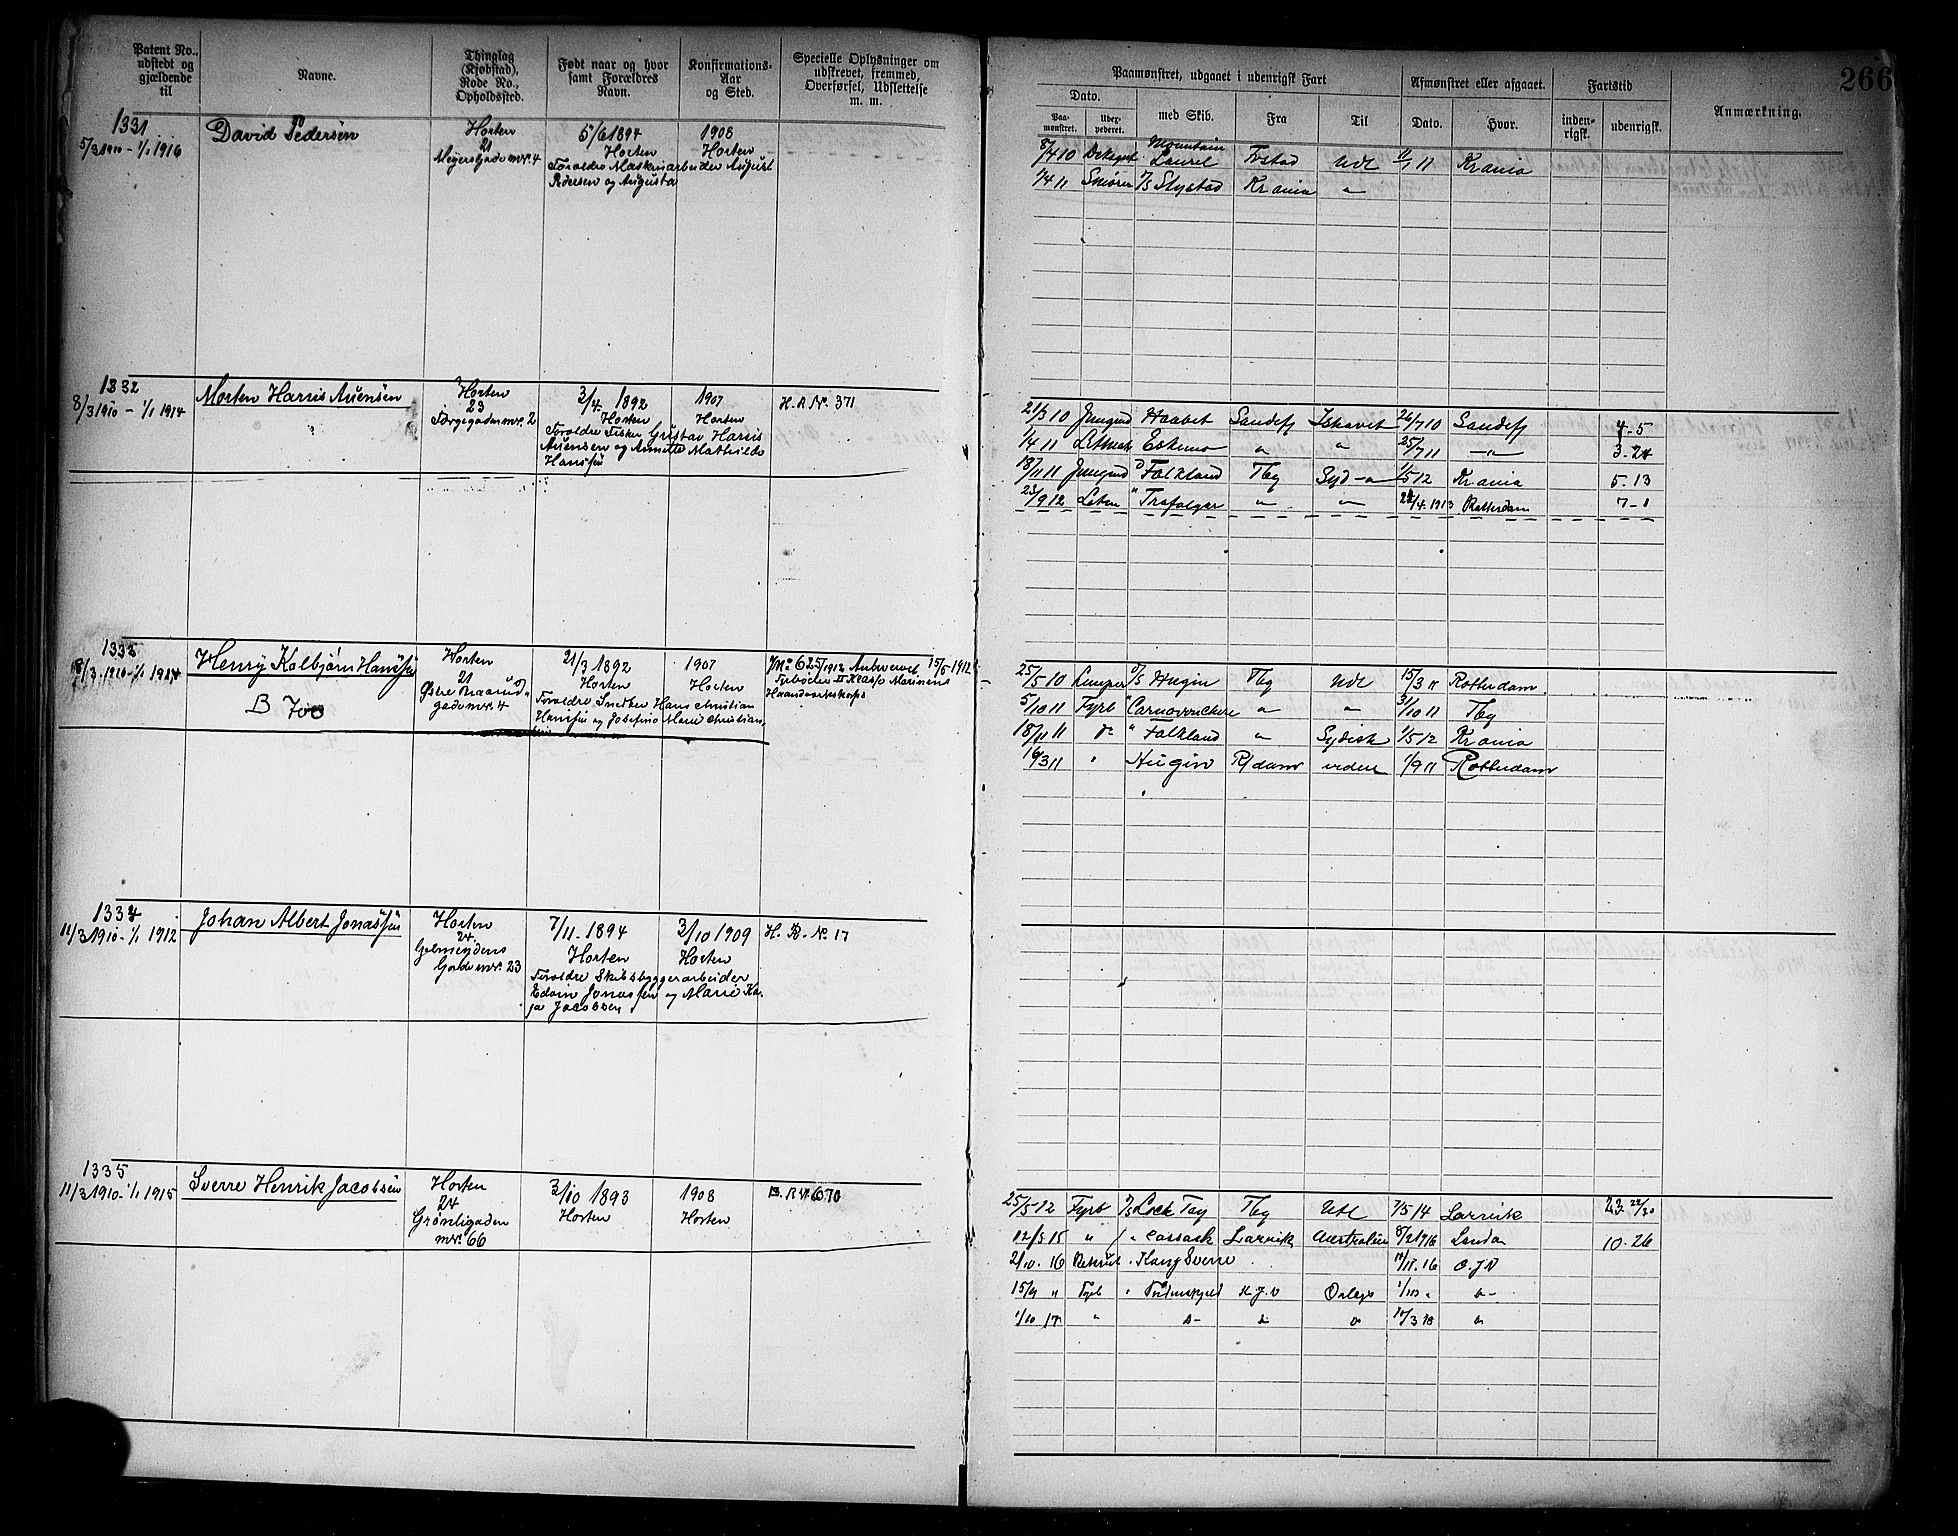 Patent No., udstedt og gjældende til
Navne.
Thinglag (Kjøbstad), Rode No., Opholdssted.
Født naar og hvor samt Forældres Navn.
Konfirmations-Aar og Sted.
Specielle Oplysninger om udskrevet, fremmed, Overførsel, Udslettelse m. m.
Paamønstret, udgaaet i udenrigsk Fart
Afmønstret eller afgaaet.
Fartstid
Anmærkning.
266
Dato.
Paamønstret.
med Skib.
Fra
Til
Dato.
Hvor.
indenrigsk.
udenrigsk.
1331
5/3 1910 – 1/1 1916
David Pedersen
Horten
21
Meyers Gade nr. 4
5/6 1894
Horten
Foreldre Maskinarbeider August
Pedersen og Augusta
1908
Horten
8/4 10 Dæksgut Mountain Laurel Fstad Udl 11 Krania
1/4 11 Krania "
1332
8/3 1910 – 1/1 1914
Morten Harris Auensen
Horten
23
Færgegaden nr. 2
3/4. 1892
Horten
Foreldre Fisker Gustav Harris
Auensen og Annette Mathilde
Hanssen
1907
Horten
H. R. Nr. 371
21/3 10 Jungmd Haabet Sandefj Ishavet 26/7 10 Sandefj 4-5
1/4 11 Letmatr Eskimo " " 25/7 11 —"— 3-24
18/11 11 Jungmd Falkland Tbg Syd 1/5 12 Krania 5.13
23/9 12 " Trafalgar " " /4. 1913 Rotterdam 7-1
1333
8/3. 1910 – 1/1 1914
Henry Kolbjørn Hanssen
B 700
Horten
21
Østre Braarudgade nr. 4
21/3 1892
Horten
Foreldre Snedker Hans Christian
Hanssen og Josefine Marie Christian
1907
Horten
No 625/1912
15/6 1912
Fyrbøder II Klasse Marinens
Haandverkskorps
25/5 10 Lemper D/S Hugin Tbg Udl 15/3 11 Rotterdam
5/10 11 Fyrb " " " 31/10 11 Tbg
18/11 11 " Falkland " Sydish 1/5 12 Krania
16/3 11 " Hugin R/dam videre 1/9 11 Rotterdam
1334
11/3 1910 – 1/1 1912
Johan Albert Jonassen
Horten
24.
Gjelmeydens
Gade nr. 23
7/11. 1894
Horten
Foreldre Skibsbyggerarbeider
Edvin Jonassen og Marie Kaja Jacobsen
3/10 1909
Horten
H. B. Nr. 17
1335
11/3 1910 – 1/1 1915
Sverre Henrik Jacobsen
Horten
24
Grønligaden
nr. 66
3/10 1893
Horten
1908
Horten
25/5 12 Fyrb D/S Lock Tay Tbg Udl 7/5 14 Larvik 23
12/5 15 " " Cossack Larvik Australien 8/2 1916 London 10-26
2/10. 16 Rekrut " Kong Sverre 16 O.J.V
15/9 " Fyrb " K.J.V Orlogs "
1/10 17 " " " 3 18 "